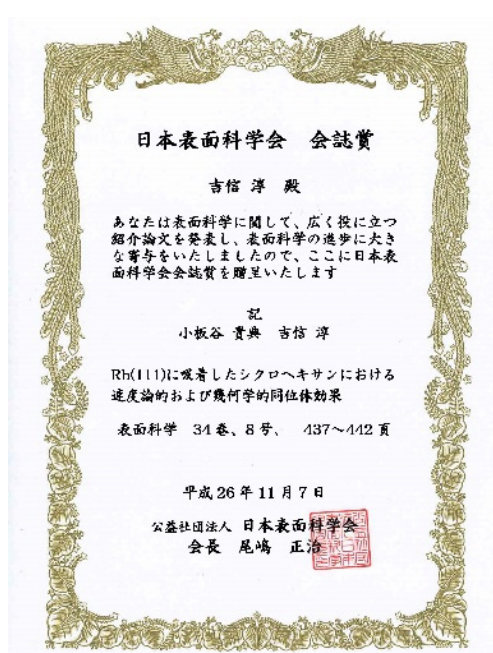 日本表面科学会　会誌賞
吉信 淳　殿
あなたは表面科学に関して、広く役に立つ
紹介論文を発表し、表面科学の進歩に大き
な寄与をいたしましたので、ここに日本表
面科学会会誌賞を贈呈いたします
記
小板谷 貴典　吉信 淳
Rh(111)に吸着したシクロヘキサンにおける
速度論的および幾何学的同位体効果
表面科学　34 巻、8 号、　437～442 頁
平成 26 年 11 月 7 日
公益社団法人 日本表面科学会
会長　尾嶋　正治